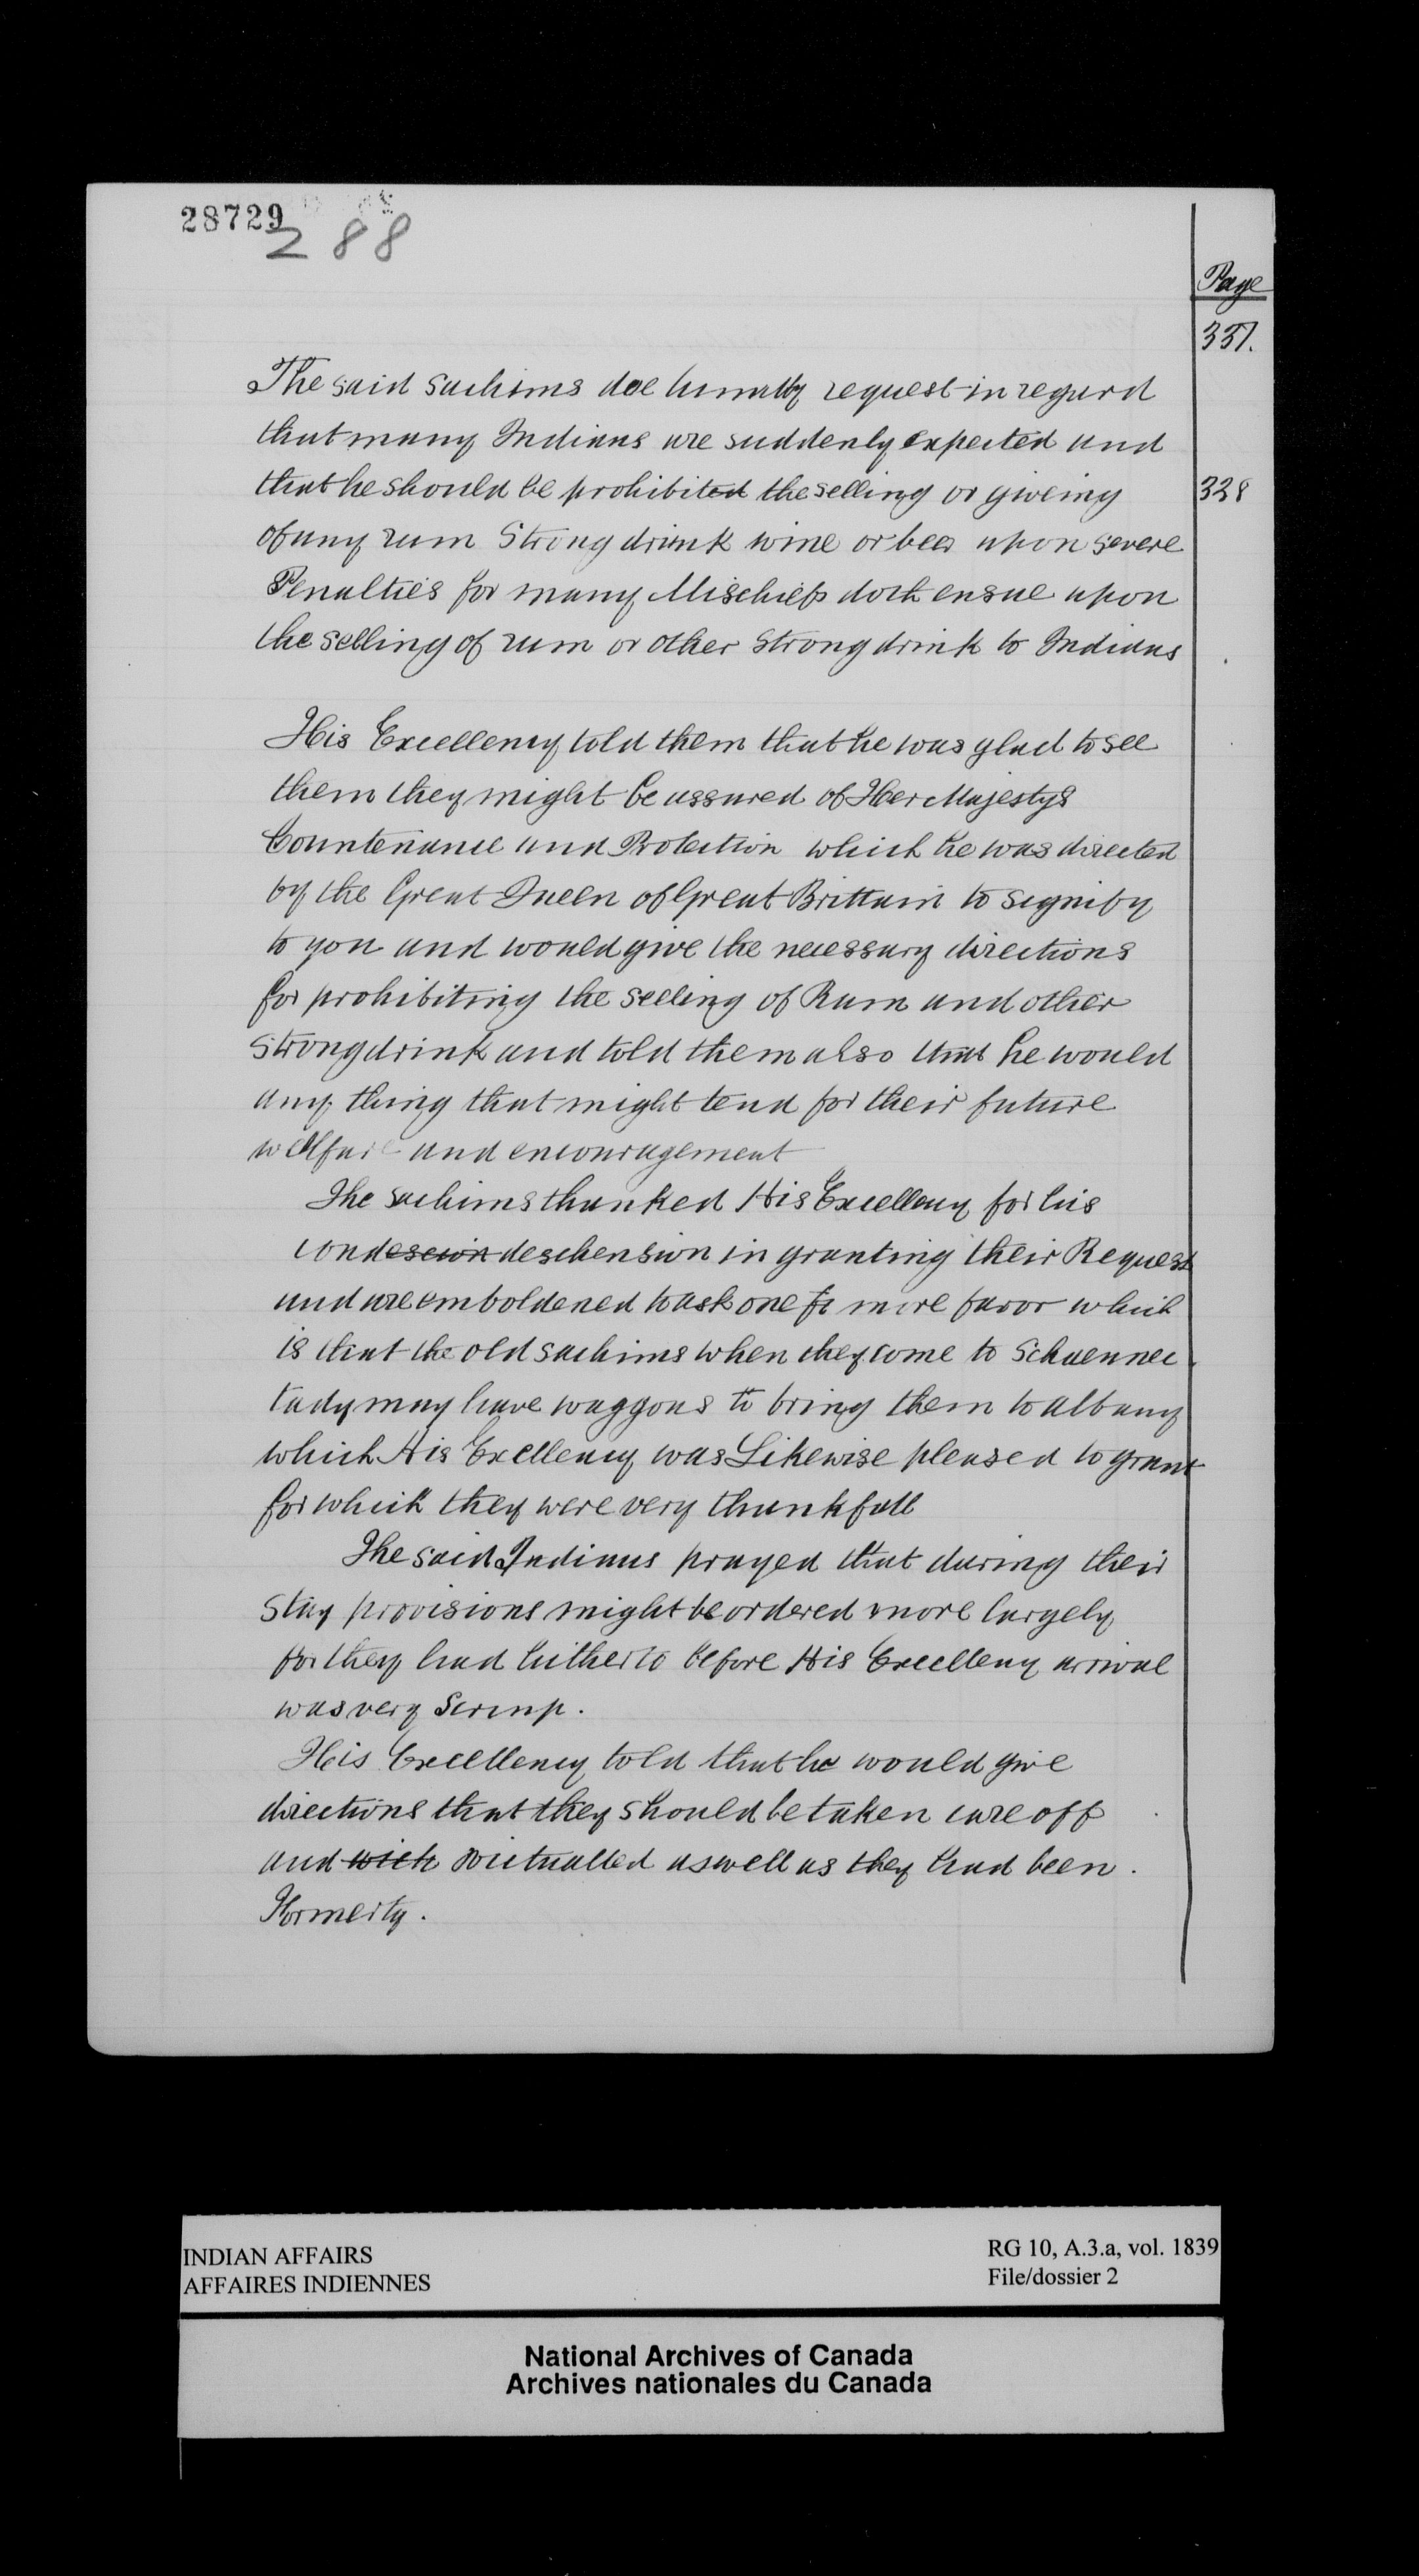 28729
288
Page
337.
The said sachims doe humbly request in regard
that many Indians are suddenly expected and
that he should be prohibited the selling or giveing
328
of any rum Strong drink wine or beer upon severe
Penalties for many Mischiefs doth ensue upon
the selling of rum or other strong drink to Indians
His Excellency told them that he was glad to see
them they might be assured of Her Majestys
Countenance and Protection which he was directed
by the Great Queen of Great Brittain to signify
to you and would give the necessary directions
for prohibiting the selling of Rum and other
strong drink and told them also that he would
any thing that might tend for their future
welfare and encouragement
The sachims thanked His Excellency for his
condescion deschension in granting their Request
and are emboldened to ask one fa more favor which
is that the old sachims when they come to Schaennec
tady may have waggons to bring them to albany
which His Exellency was Likewise pleased to grant
for which they were very thankfull
The said Indians prayed that during their
stay provisions might be ordered more largely
for they had hitherto before His Excelleny arrival
was very Scrimp.
His Excellency told that he would give
directions that they should be taken care off
and wich victualled as well as they had been.
Formerly.
INDIAN AFFAIRS
AFFAIRES INDIENNES
RG 10, A.3.a, vol. 1839
File/dossier 2
National Archives of Canada
Archives nationales du Canada